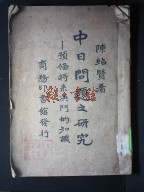 陳紹賢著
中日問題之研究
—預備將來奮鬥的知識
商務印書館發行